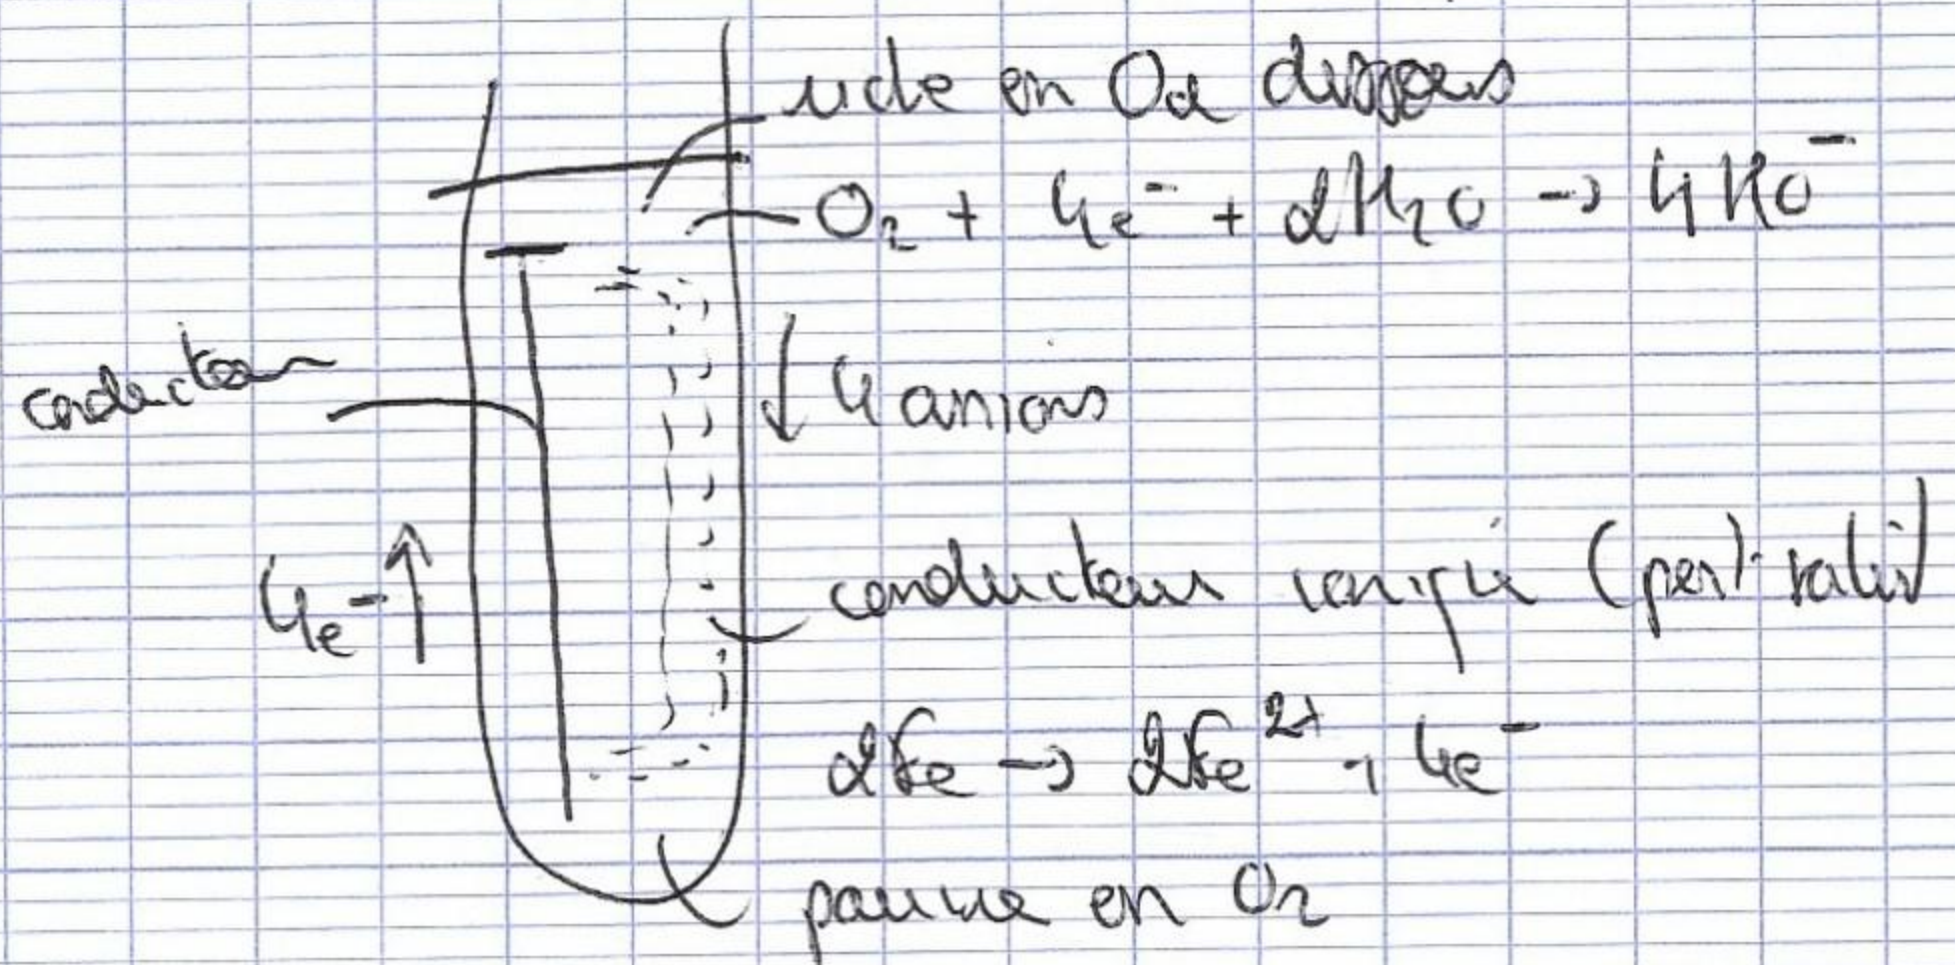 riche en O2 dissous
O2 + 4e- + 2H2O → 4HO-
conducteur
↓ 4 anions
4e- ↑
conducteur ionique (pont salin)
2Fe → 2Fe2+ + 4e-
pauvre en O2